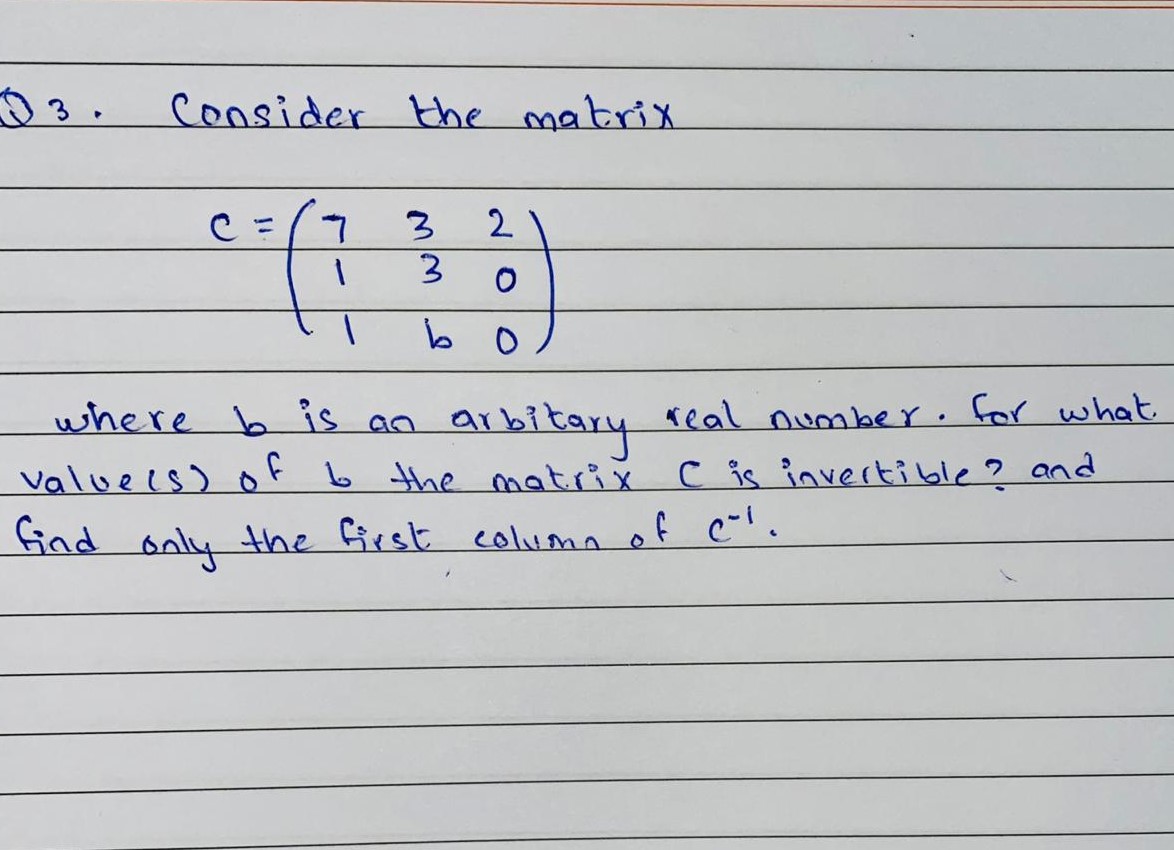 Q3. Consider the matrix
C = ( 7 3 2
1 3 0
1 b 0 )
where b is an arbitary real number. for what
value(s) of b the matrix C is invertible? and
find only the first column of C⁻¹.